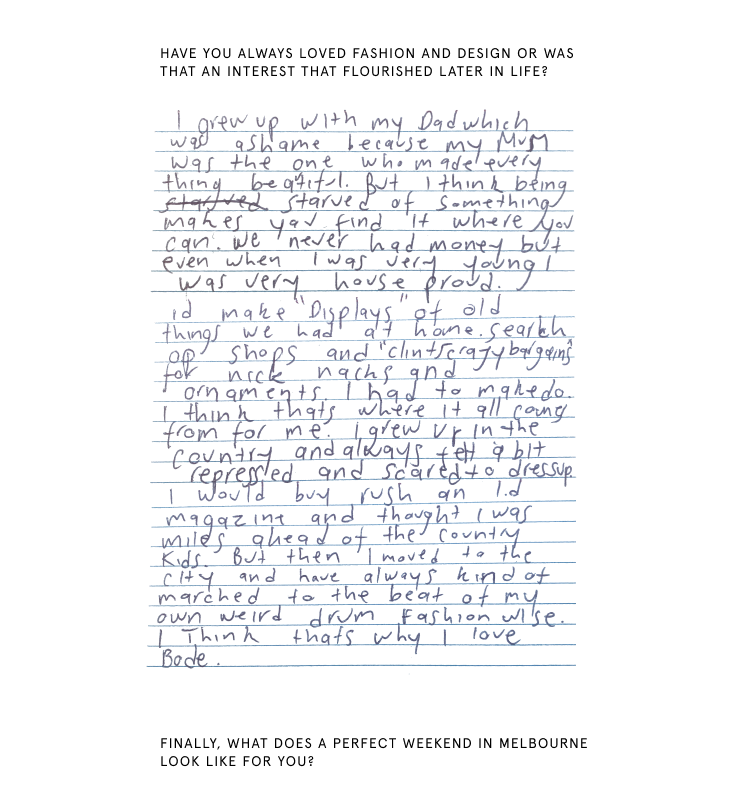 HAVE YOU ALWAYS LOVED FASHION AND DESIGN OR WAS
THAT AN INTEREST THAT FLOURISHED LATER IN LIFE?
I grew up with my Dad which
was ashame because my MuM
was the one who made every
thing beatiful. But I think being
starved starved of something
makes you find it where you
can. we never had money but
even when I was very young I
was very house proud.
id make "Displays" of old
things we had at home. search
op shops and "clintscrazybargains"
for nick nacks and
ornaments. I had to make do.
I think thats where it all came
from for me. I grew up in the
country and always felt a bit
repressed and scared to dress up
I would buy rush an I.d
magazine and thought I was
miles ahead of the country
Kids. But then I moved to the
city and have always kind of
marched to the beat of my
own weird drum Fashion wise.
I Think thats why I love
Bode.
FINALLY, WHAT DOES A PERFECT WEEKEND IN MELBOURNE
LOOK LIKE FOR YOU?